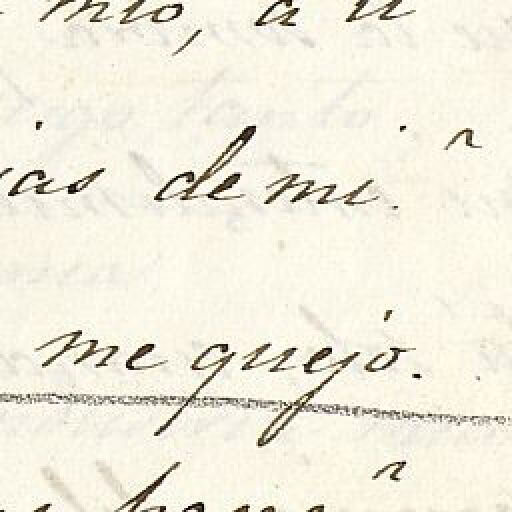 mio, a ti
ias de mi.
me quejo.